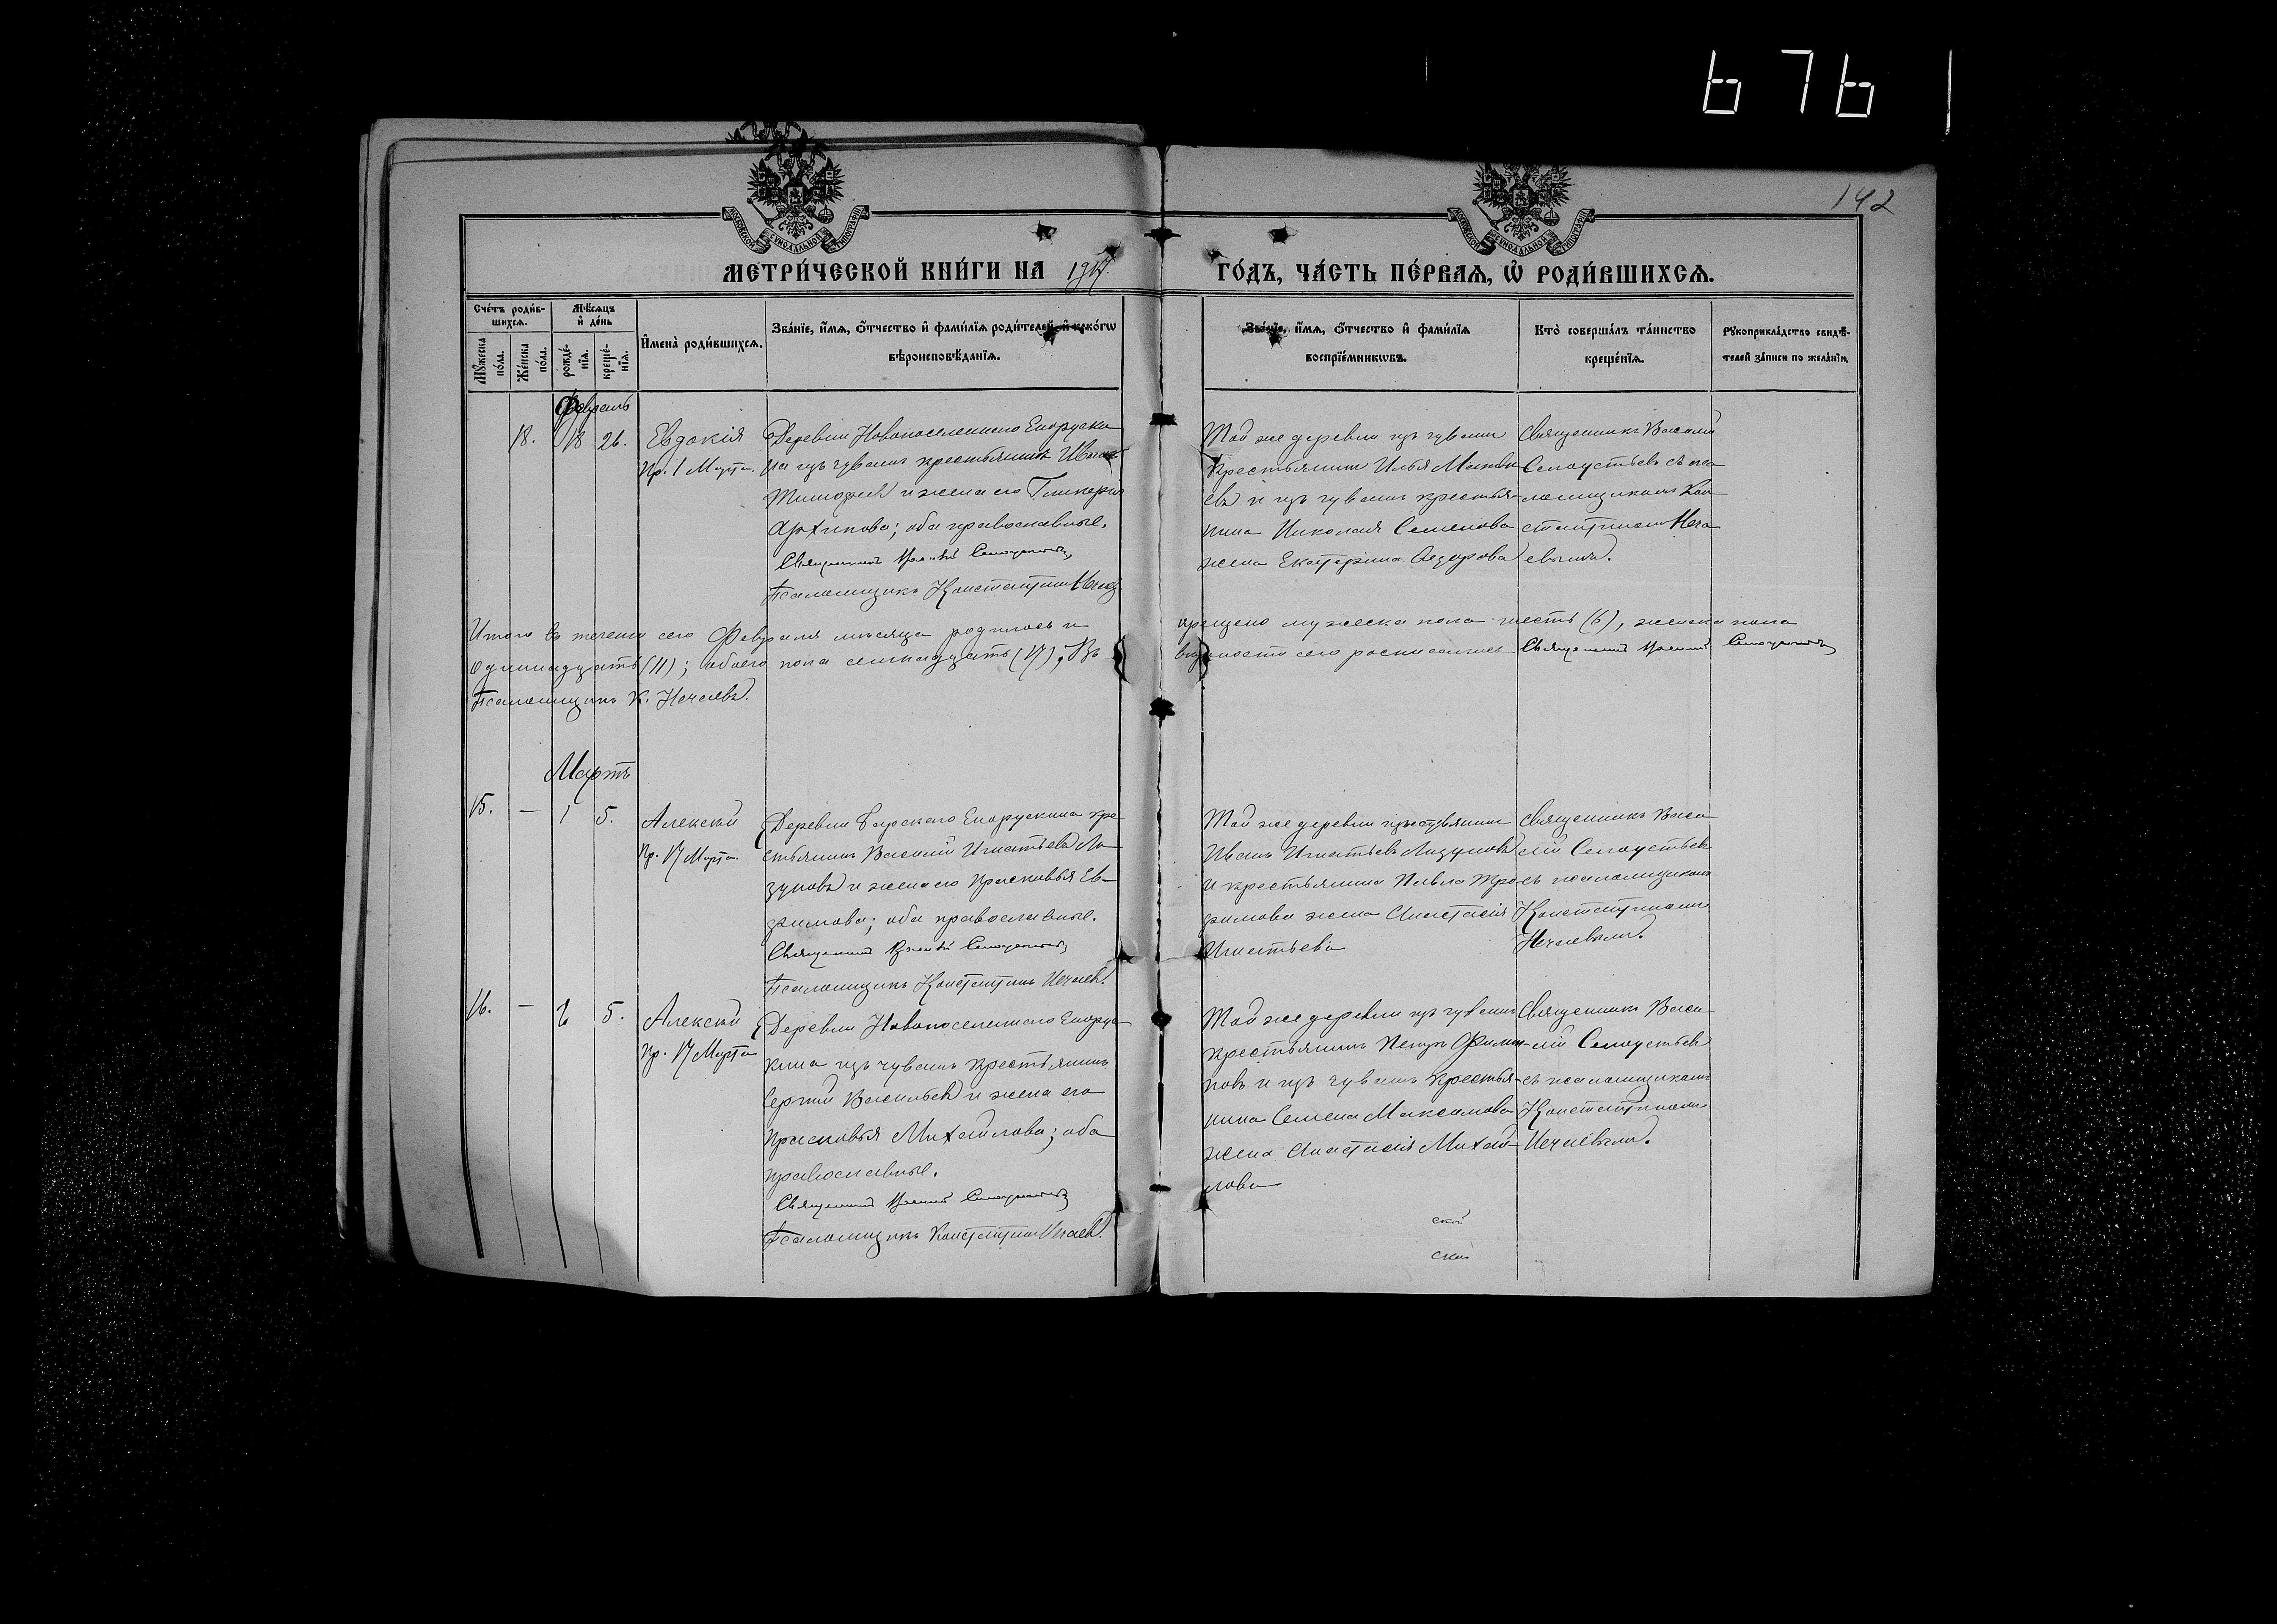 676
142
МОСКОВСКОЙ СУНОДАЛЬНОЙ ТИПОГРАФІИ
МОСКОВСКОЙ СУНОДАЛЬНОЙ ТИПОГРАФІИ
МЕТРИ́ЧЕСКОЙ КНИ́ГИ НА 1917. ГО́ДЪ, ЧА́СТЬ ПЕ́РВАЯ, Ѡ҆ РОДИ́ВШИХСЯ.
Сче́тъ роди́в-
шихся.
Мѣ́сяцъ
и҆ де́нь
Мꙋ́жеска
по́ла.
Же́нска
по́ла.
рожде́-
нїя.
креще́-
нїя.
И҆мена̀ роди́вшихся.
Зва́нїе, и҆́мя, ѻ҆́тчество и҆ фами́лїя роди́телей, и҆ како́гѡ
вѣ́роисповѣ́данїя.
Зва́нїе, и҆́мя, ѻ҆́тчество и҆ фами́лїя
воспрїе́мникѡвъ.
Кто̀ соверша́лъ та́инство
креще́нїя.
Рꙋкоприкла́дство свидѣ́-
телей за́писи по жела́нїю.
Февраль
18. 18 26. Евдокія
Пр. 1 Марта.
Деревни Новопоселеннаго Еноруски-
на изъ чувашъ крестьянинъ Иванъ
Тимофеевъ и жена его Гликерія
Архипова; оба православные.
Священникъ Василій Самоустьевъ
Псаломщикъ Константинъ Нечаевъ
Той же деревни изъ чувашъ
крестьянинъ Илья Матве-
евъ и изъ чувашъ крестья-
нина Николая Семенова
жена Екатерина Федорова
Священникъ Василій
Самоустьевъ съ пса-
ломщикомъ Кон-
стантиномъ Неча-
евымъ.
Итого въ теченіи сего Февраля мѣсяца родилось и крещено мужеска пола шесть (6), женска пола
одиннадцать (11); обоего пола семнадцать (17). Въ вѣрности сего росписались Священникъ Василій Самоустьевъ
Псаломщикъ К. Нечаевъ.
Мартъ
15. — 1 5. Алексѣй
Пр. 17 Марта.
Деревни Боярскаго Енорускина кре-
стьянинъ Василій Игнатьевъ Ла-
зуновъ и жена его Прасковья Ев-
фимова; оба православные.
Священникъ Василій Самоустьевъ
Псаломщикъ Константинъ Нечаевъ.
Той же деревни крестьянинъ
Иванъ Игнатьевъ Лазуновъ
и крестьянина Павла Тро-
фимова жена Анастасія
Игнатьева
Священникъ Васи-
лій Самоустьевъ
съ псаломщикомъ
Константиномъ
Нечаевымъ.
16. — 2 5. Алексѣй
Пр. 17 Марта
Деревни Новопоселеннаго Енорус-
кина изъ чувашъ крестьянинъ
Сергій Васильевъ и жена его
Прасковья Михайлова; оба
православные.
Священникъ Василій Самоустьевъ
Псаломщикъ Константинъ Нечаевъ.
Той же деревни изъ чувашъ
крестьянинъ Петръ Филип-
повъ и изъ чувашъ крестья-
нина Семена Максимова
жена Анастасія Михай-
лова
Священникъ Васи-
лій Самоустьевъ
съ псаломщикомъ
Константиномъ
Нечаевымъ.
ской
ским